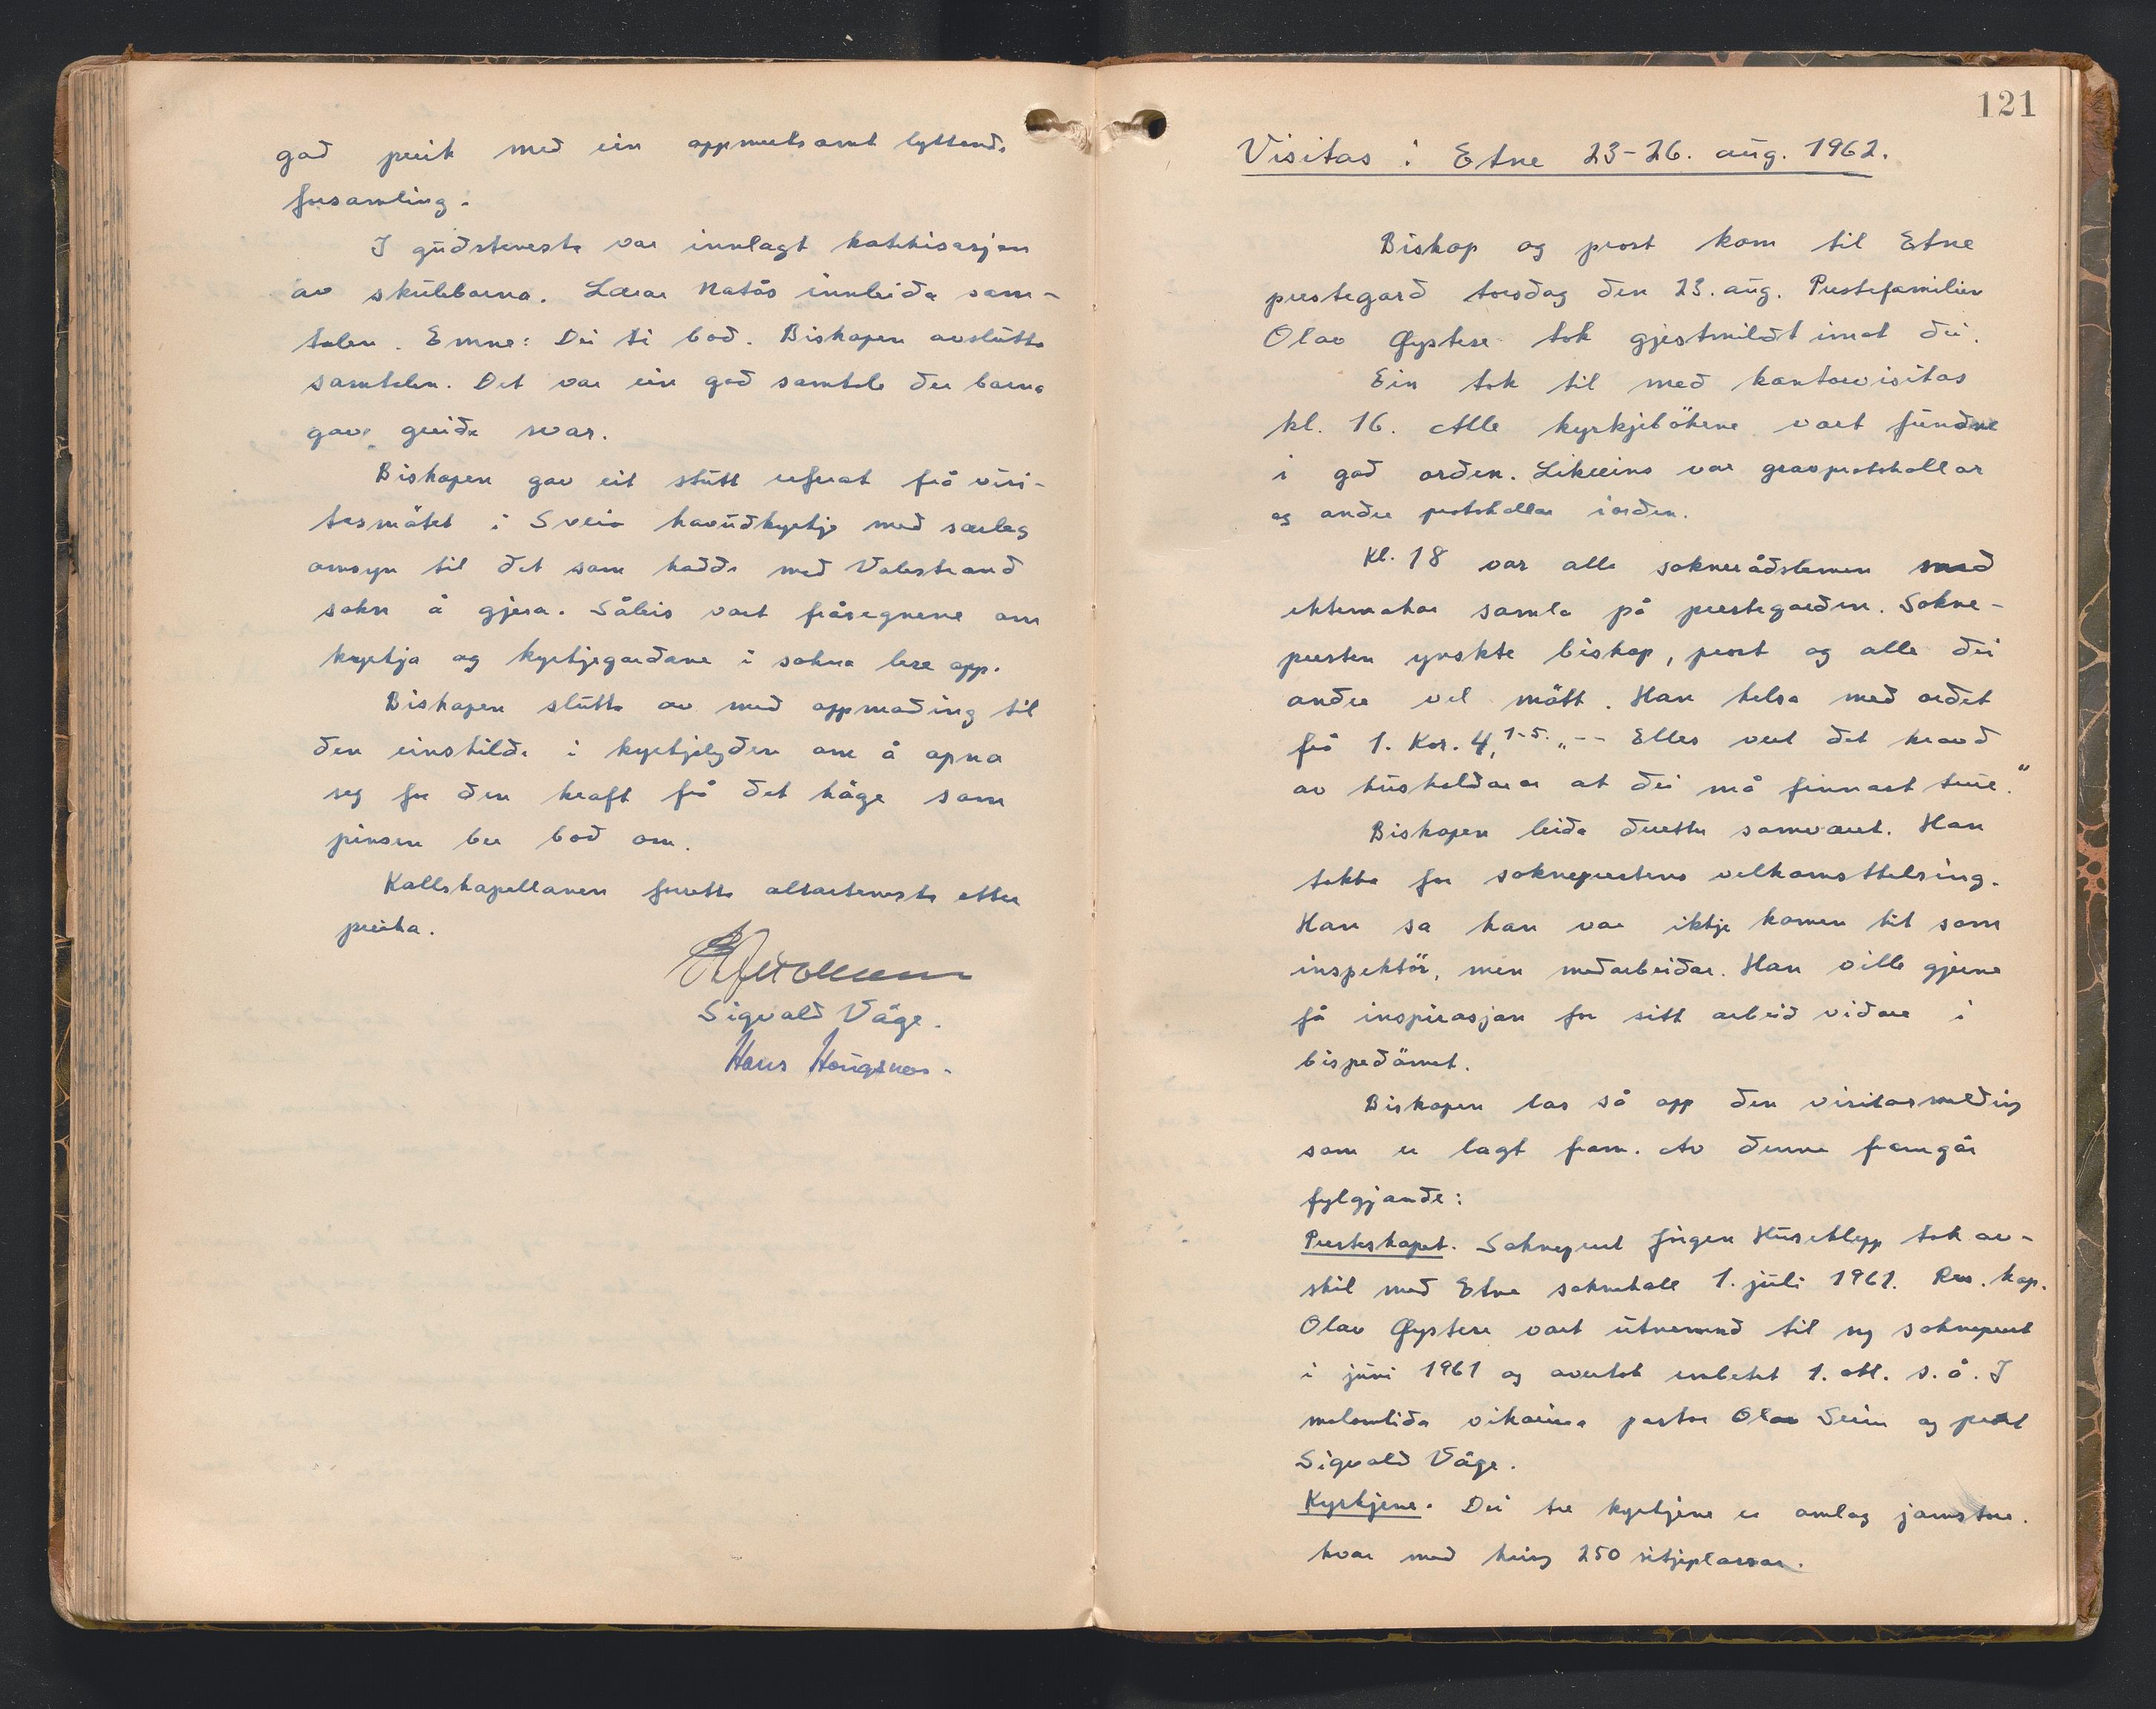 god preik med ein oppmerksamt lyttende
forsamling.
I gudstenesta var innlagt katekisasjon
av skuleborna. Lærar Natås innleidde sam-
talen. Emne: Dei ti bod. Biskopen avslutta
samtalen. Det var ein god samtale der borna
gav greide svar.
Biskopen gav eit stutt referat frå visi-
tasmötet i Sveio hovudkyrkje med særleg
omsyn til det som hadde med Valestrand
sokn å gjera. Såleis vart fråsegnene om
kyrkja og kyrkjegardane i sokna lese opp.
Biskopen slutta av med oppmoding til
den einskilde i kyrkjelyden om å opna
seg for den kraft frå det höge som
pinsen ber bod om.
Kallskapellanen forretta altartenesta etter
preika.
Sigvald Våge.
Hans Hougsnes.
121
Visitas i Etne 23-26. aug. 1962.
Biskop og prost kom til Etne
prestegard torsdag den 23. aug. Prestefamilien
Olav Øystese tok gjestmildt imot dei.
Ein tok til med kontorvisitas
kl. 16. Alle kyrkjebökene vart fundne
i god orden. Likeeins var gravprotokollar
og andre protokollar i orden.
Kl. 18 var alle sokneråðslemen med
ektemakar samla på prestegarden. Sokne-
presten ynskte biskop, prost og alle dei
andre vel mött. Han helsa med ordet
frå 1. Kor. 4, 1-5. „-- Elles vert det kravd
av hushaldarar at dei må finnast true."
Biskopen leidde dretter samværet. Han
takka for sokneprestens velkomsthelsing.
Han sa han var ikkje komen hit som
inspektör, men medarbeidar. Han ville gjerne
få inspirasjon for sitt arbeid vidare i
bispedömet.
Biskopen las så opp den visitasmelding
som er lagt fram. Av denne framgår
fylgjande:
Presteskapet. Sokneprest Jörgen Huseklepp tok av-
skil med Etne sokneskall 1. juli 1961. Res. kap.
Olav Øystese vart utnemnd til ny sokneprest
i juni 1961 og overtok embetet 1. okt. s. å. I
mellomtida vikarierte pastor Olav Seim og prost
Sigvald Våge.
Kyrkjene. Dei tre kyrkjene er omlag jamstore.
kvar med kring 250 sitjeplassar.